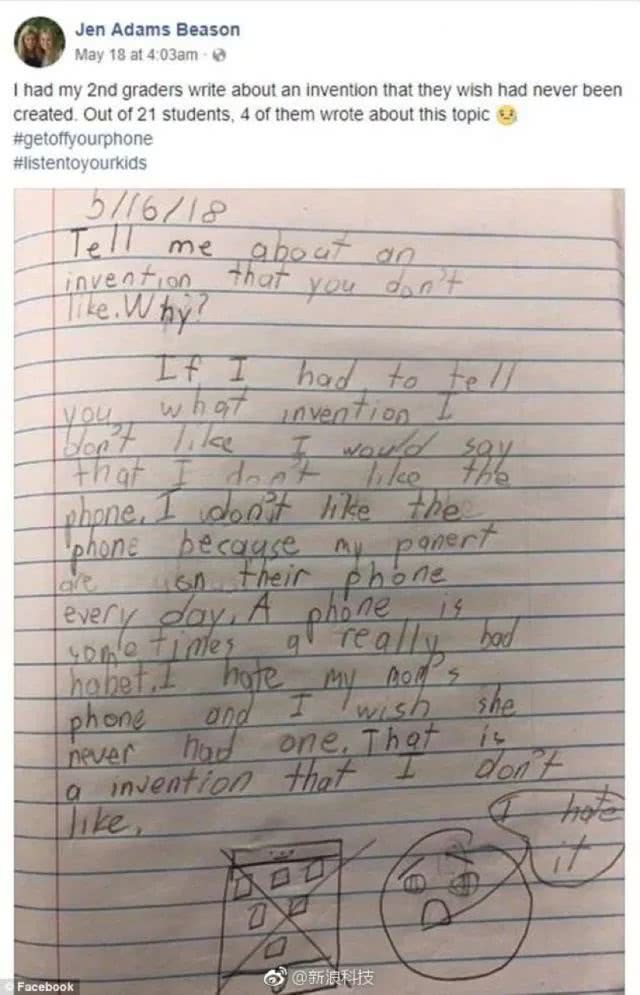 Jen Adams Beason
May 18 at 4:03am ·
I had my 2nd graders write about an invention that they wish had never been
created. Out of 21 students, 4 of them wrote about this topic 😢
#getoffyourphone
#listentoyourkids
5/16/18
Tell me about an
invention that you don't
like. Why?
If I had to tell
you what invention I
don't like I would say
that I don't like the
phone. I don't like the
phone because my panert
are on their phone
every day. A phone is
sometimes a really bad
habet. I hate my mom's
phone and I wish she
never had one. That is
a invention that I don't
like.
I hate
it
© Facebook
@新浪科技